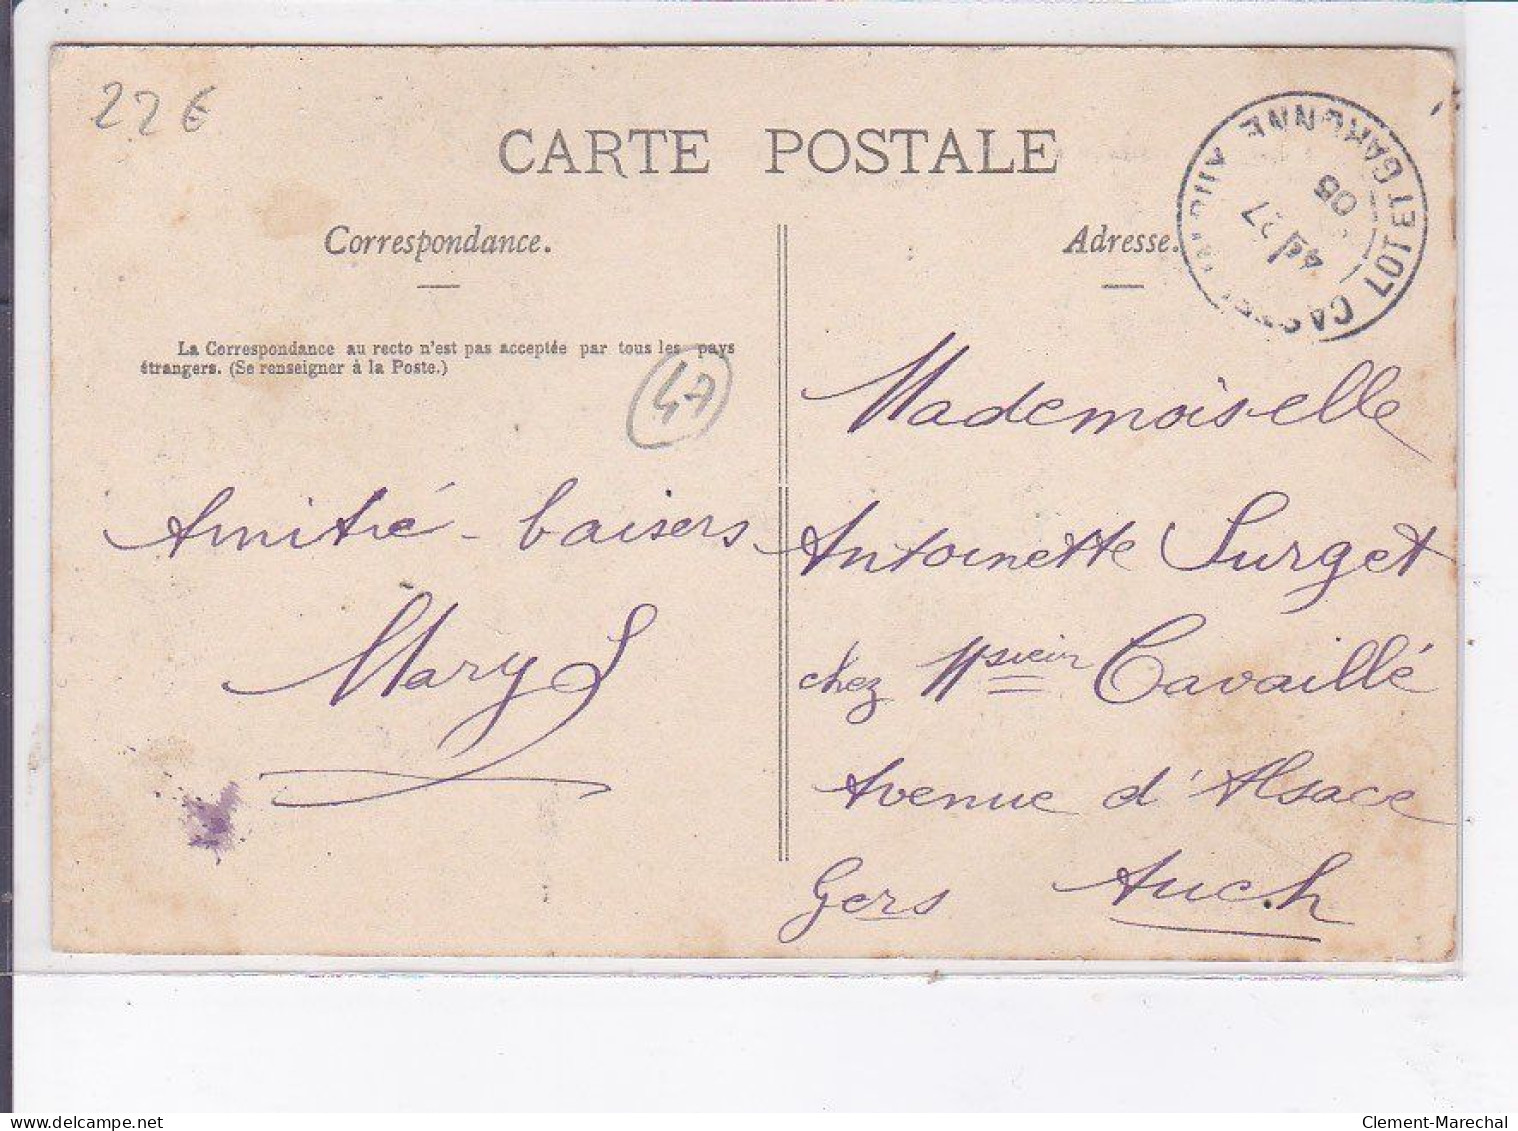 22€
CARTE POSTALE
Correspondance.
Adresse.
LOT ET GARONNE
27
05
La Correspondance au recto n'est pas acceptée par tous les pays
étrangers. (Se renseigner à la Poste.)
47
Amitié - baisers
Mary S
Mademoiselle
Antoinette Surget
chez Msieur Cavaillé
Avenue d'Alsace
Gers Auch
delcampe.net
Clement-Marechal